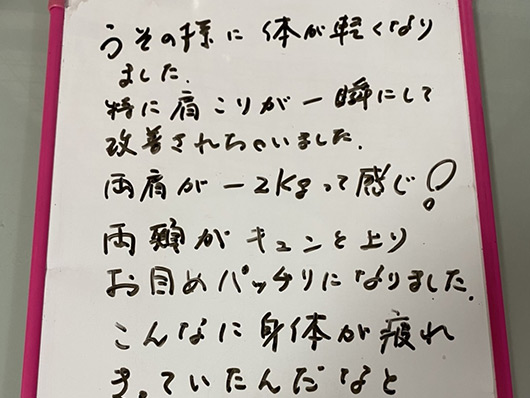 うその様に体が軽くなり
ました.
特に肩こりが一瞬にして
改善されちゃいました.
両肩が-2kgって感じ!
両頬がキュンと上り
お目めパッチリになりました.
こんなに身体が疲れ
きっていたんだなと